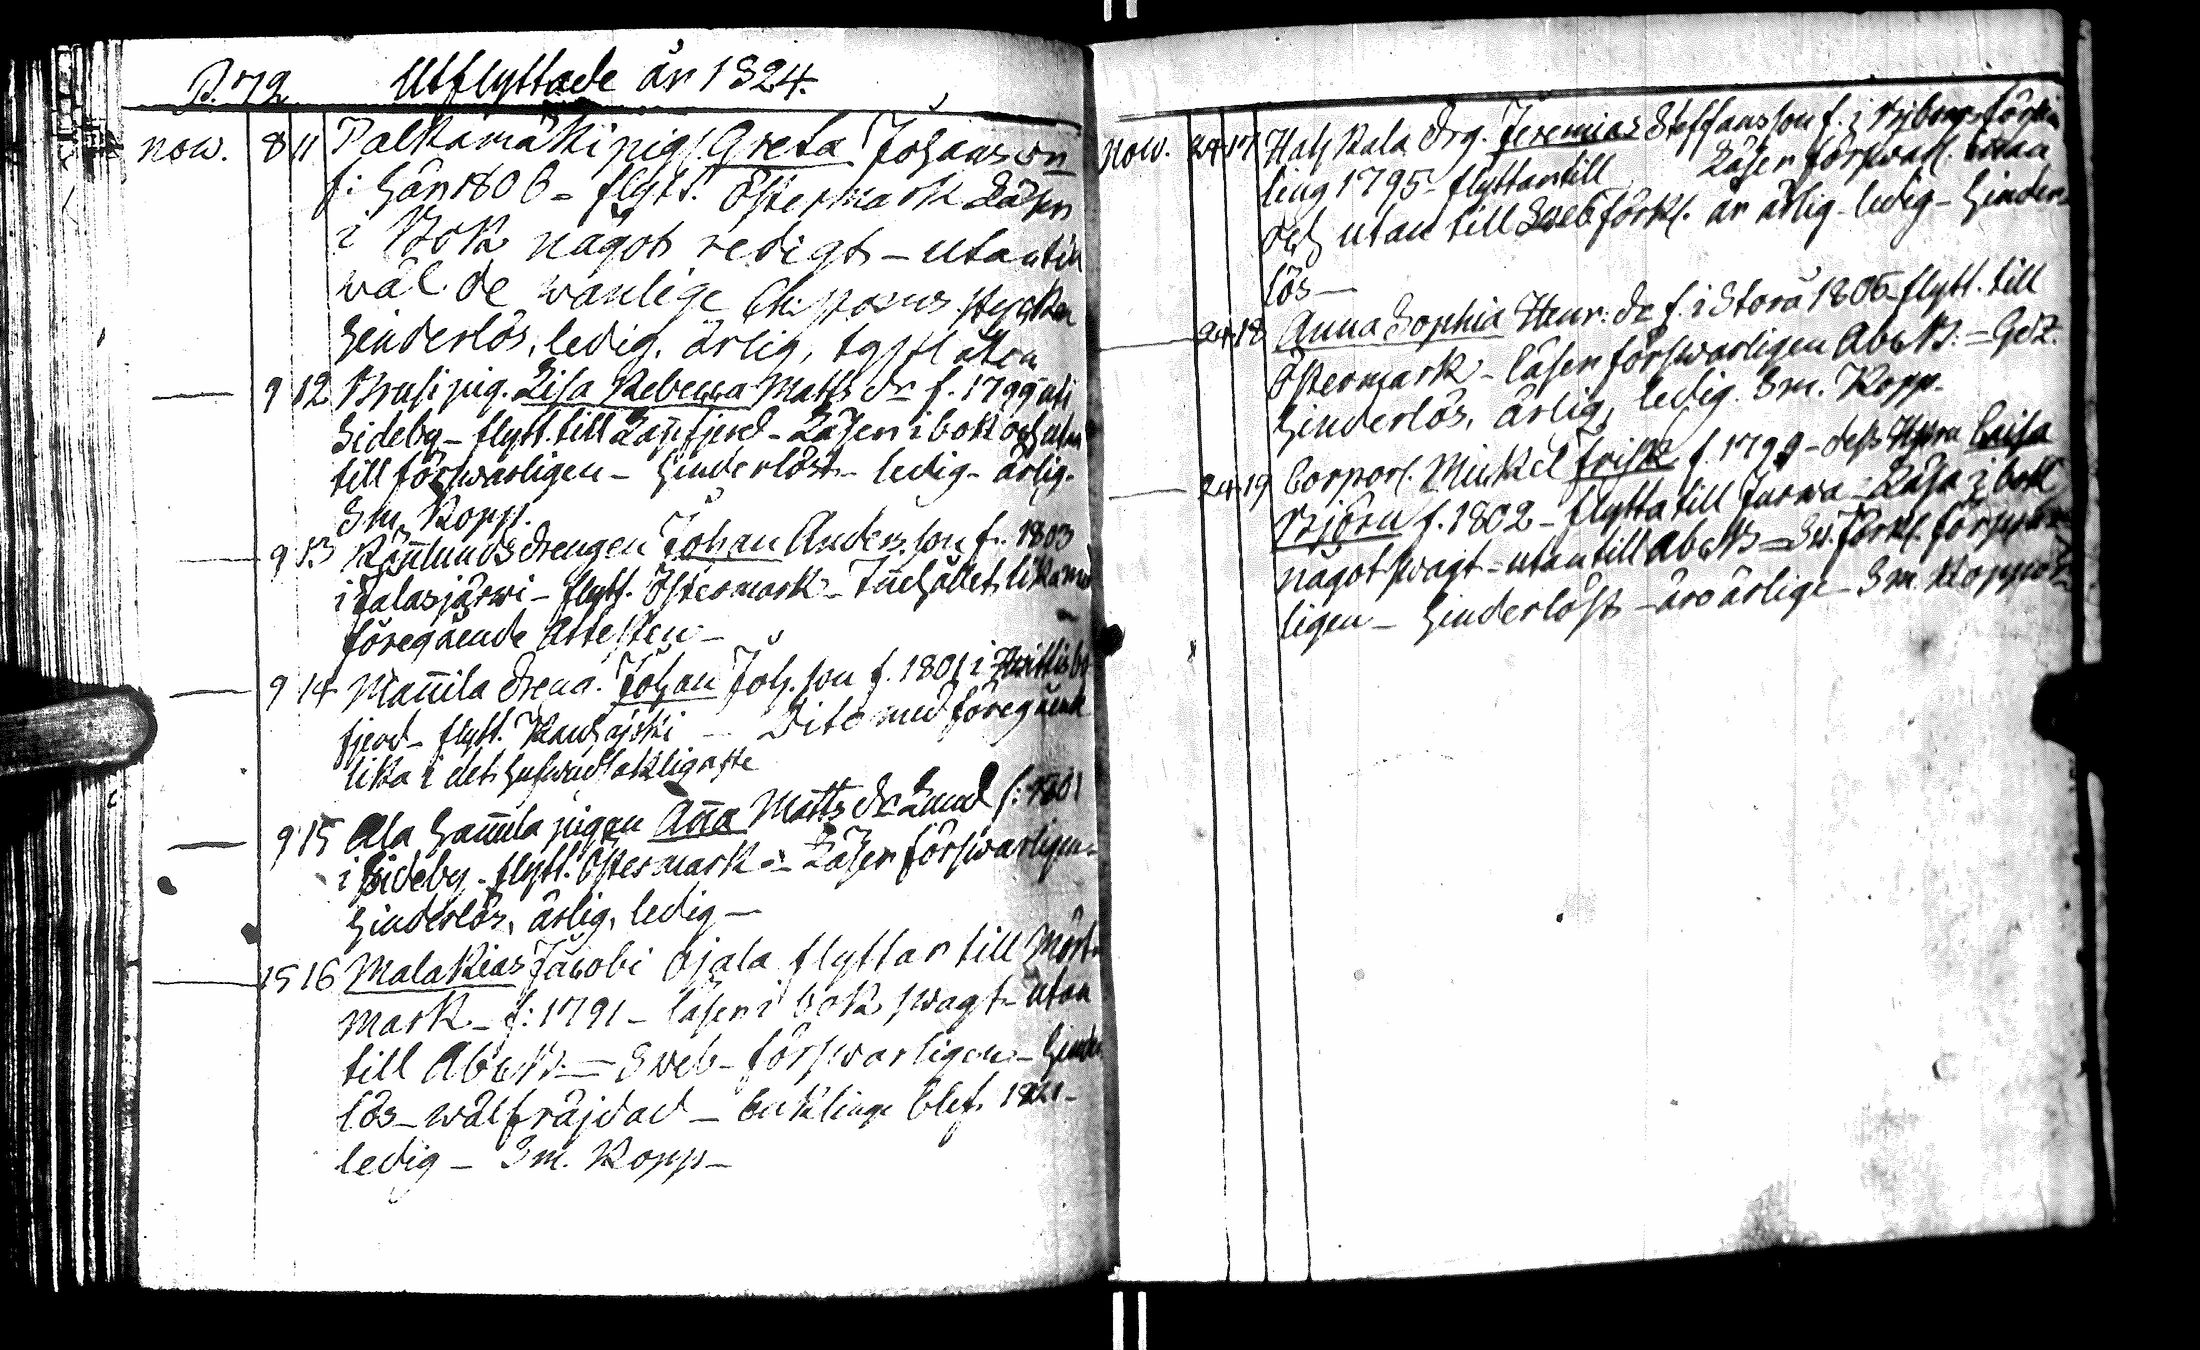 P. 72. Utflyttade år 1824.
nov. 8 11 Palkamäki pig. Greta Johans
f: här 1806 - flytt. Östermark Läser
i Bok något redigt - utantill
wäl de wanlige Ch. stycken
hinderlös, ledig, ärlig,
9 12 pig. Lisa Rebecca Matts dr f. 1799 uti
Sideby - flytt. till Lappfjerd - Läser i bok och utan
till förswarligen - hinderlöst - ledig - ärlig.
Sm. Kopp.
9 13 Rönlunds drengen Johan Anders son f. 1803
i Jalasjärwi - flytt. Östermark - Inehållet lika med
föregående Attesten -
9 14 Mannila dreng. Johan Joh. son f. 1801 i
fjerd - flytt. Kauhajoki - Dito med föregående
lika i det hufwudsakligaste
9 15 Ala Hannila pigan Anna Matts dr Lund f: 1801
i Sideby - flytt. Östermark - Läser förswarligen -
hinderlös, ärlig, ledig -
15 16 Malakias Jacobi Ojala flyttar till Mörte
mark - f: 1791 - läser i bok swagt - utan
till Abc B: - Sweb - förswarligen - hinder
lös - wälfräjdad - enkling blef 1821 -
ledig - Sm. Kopp -
nov. 24 17 drg. Jeremias Steffans son f. i Björneborgs förstä
ling 1795 - flyttar till Läser förswarl. innan
och utan till Sveb förkl. är ärlig - ledig - hinder
lös -
24 18 Anna Sophia Henr: dr f. i Storå 1805 - flytt. till
Östermark - läser förswarligen Abc B: -
hinderlös, ärlig, ledig. Sm. Kopp -
24 19 Corporl. Mickel Frisk f. 1799 - dess Hustru Caisa
Björn f. 1802 - flytta till Jurwa - Läsa i bok
något swagt - utan till Abc B - Sv. förkl. förswar
ligen - hinderlöst - äro ärlige - Sm. Koppor